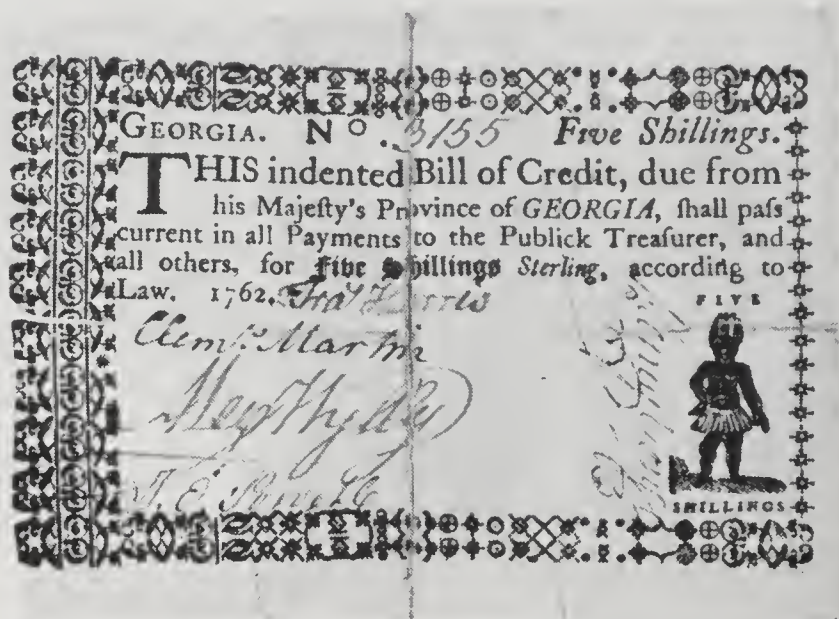 GEORGIA. No. 3155 Five Shillings.
THIS indented Bill of Credit, due from
his Majeſty's Province of GEORGIA, ſhall paſs
current in all Payments to the Publick Treaſurer, and
all others, for Five Shillings Sterling, according to
Law. 1762. Harris
Clemt. Martin
FIVE
SHILLINGS